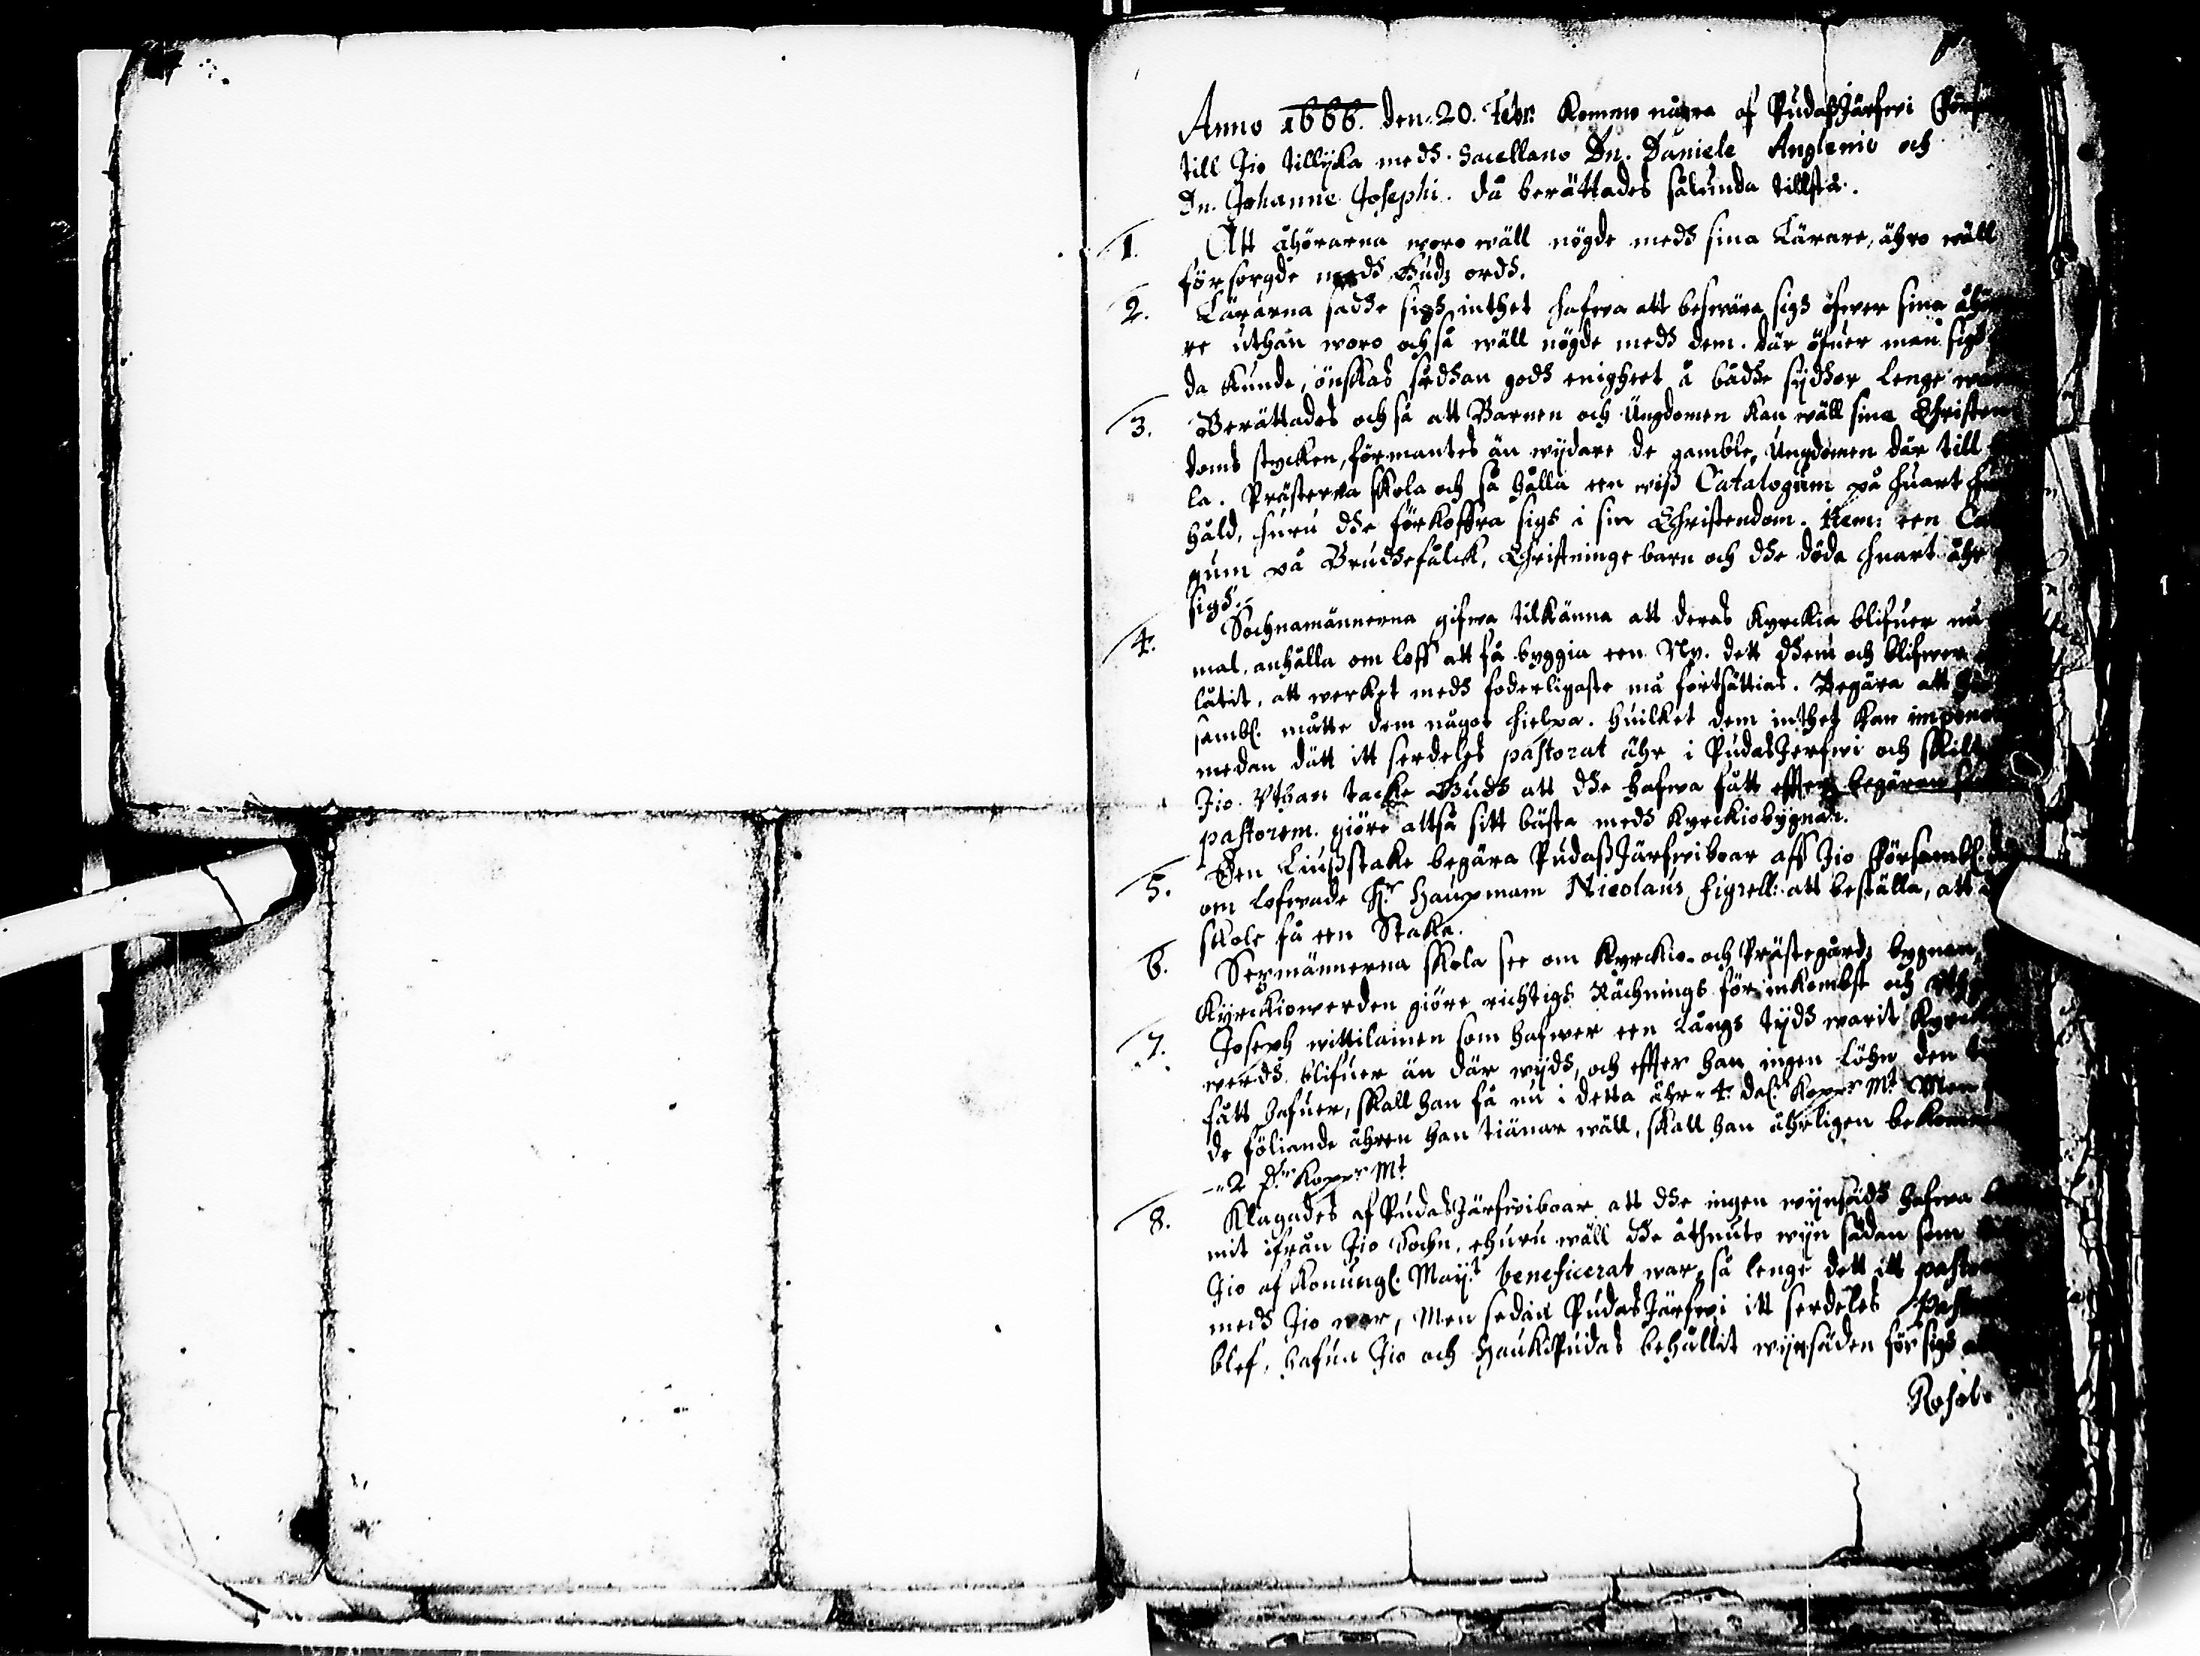 Anno 1666. den 20. Febr: Komme några af Pudaßjärfwi
till Jio tillijka medh Sacellano Dn. Daniele Anglenio och
Dn. Johanne Josephi. Då berättades sålunda tillstå.
1. Att åhörarna woro wäll nögde medh sina Lärare, ähro wäll
försorgde medh Gudz ordh.
2. Lärarna sadhe sigh inthet hafwa att beswära sigh öfwer sina
re uthan woro och så wäll nögde medh dem. där öfuer man
da kunde, önskas sådhan godh enigheet å bådhe sijdhor lenge
3. Berättades och så att Barnen och Ungdomen kan wäll sina Christen
doms stycken, förmantes än wijdare de gamble, Ungdomen där till
la. Prästerna skola och så hålla een wiß Catalogum på huart
håld, huru dhe förkoffra sigh i sin Christendom. Item: een
gum på Brudhefålck, Christninge barn och dhe döda huart åhr
sigh.
4. Sochnamännerna gifwa tilkänna att deras Kyrckia blifuer
mal, anhålla om loff att få byggia een Ny. dett dhem och blifwer
låtit, att werket medh foderligaste må fortsättias. Begära att
sambl. måtte dem något hielpa. Huilket dem inthet kan
medan dätt itt serdeles pastorat ähr i Pudasjerfwi och
Jio. Uthan tacke Gudh att dhe hafwa fått effter begäran
pastorem. giöre altså sitt bästa medh Kyrckiobygnan.
5. Den Liußstake begära Pudaßjärfwiboar aff Jio Försambl.
om lofwade Hr Haupmam Nicolaus Figrell: att beställa, att
skole få een Stake.
6. Sexmännerna skola see om Kyrckio- och Prästegårdz bygnan,
Kyrckiowerden giöre richtigh Rächningh för inkombst och
7. Joseph wittilainen som hafwer een Långh tijdh warit
werdh blifuer än där wijdh, och effter han ingen Löhn den
fått hafuer, skall han få nu i detta åhr 4 dal. Koppr Mt Men
de föliande åhren han tiänar wäll, skall han åhrligen
2 Dr Koppr Mt
8. Klagades af Pudasjärfwiboar att dhe ingen wijnsädh hafwa
mit ifrån Jio Sochn, ehuru wäll dhe åthnuto wijn säden som
Jio af Konungl. Maij:t beneficerat war, så lenge dett itt
medh Jio war, Men sedan Pudasjärfwi itt serdeles
blef, hafua Jio och Haukipudas behållit wijnsäden för sigh